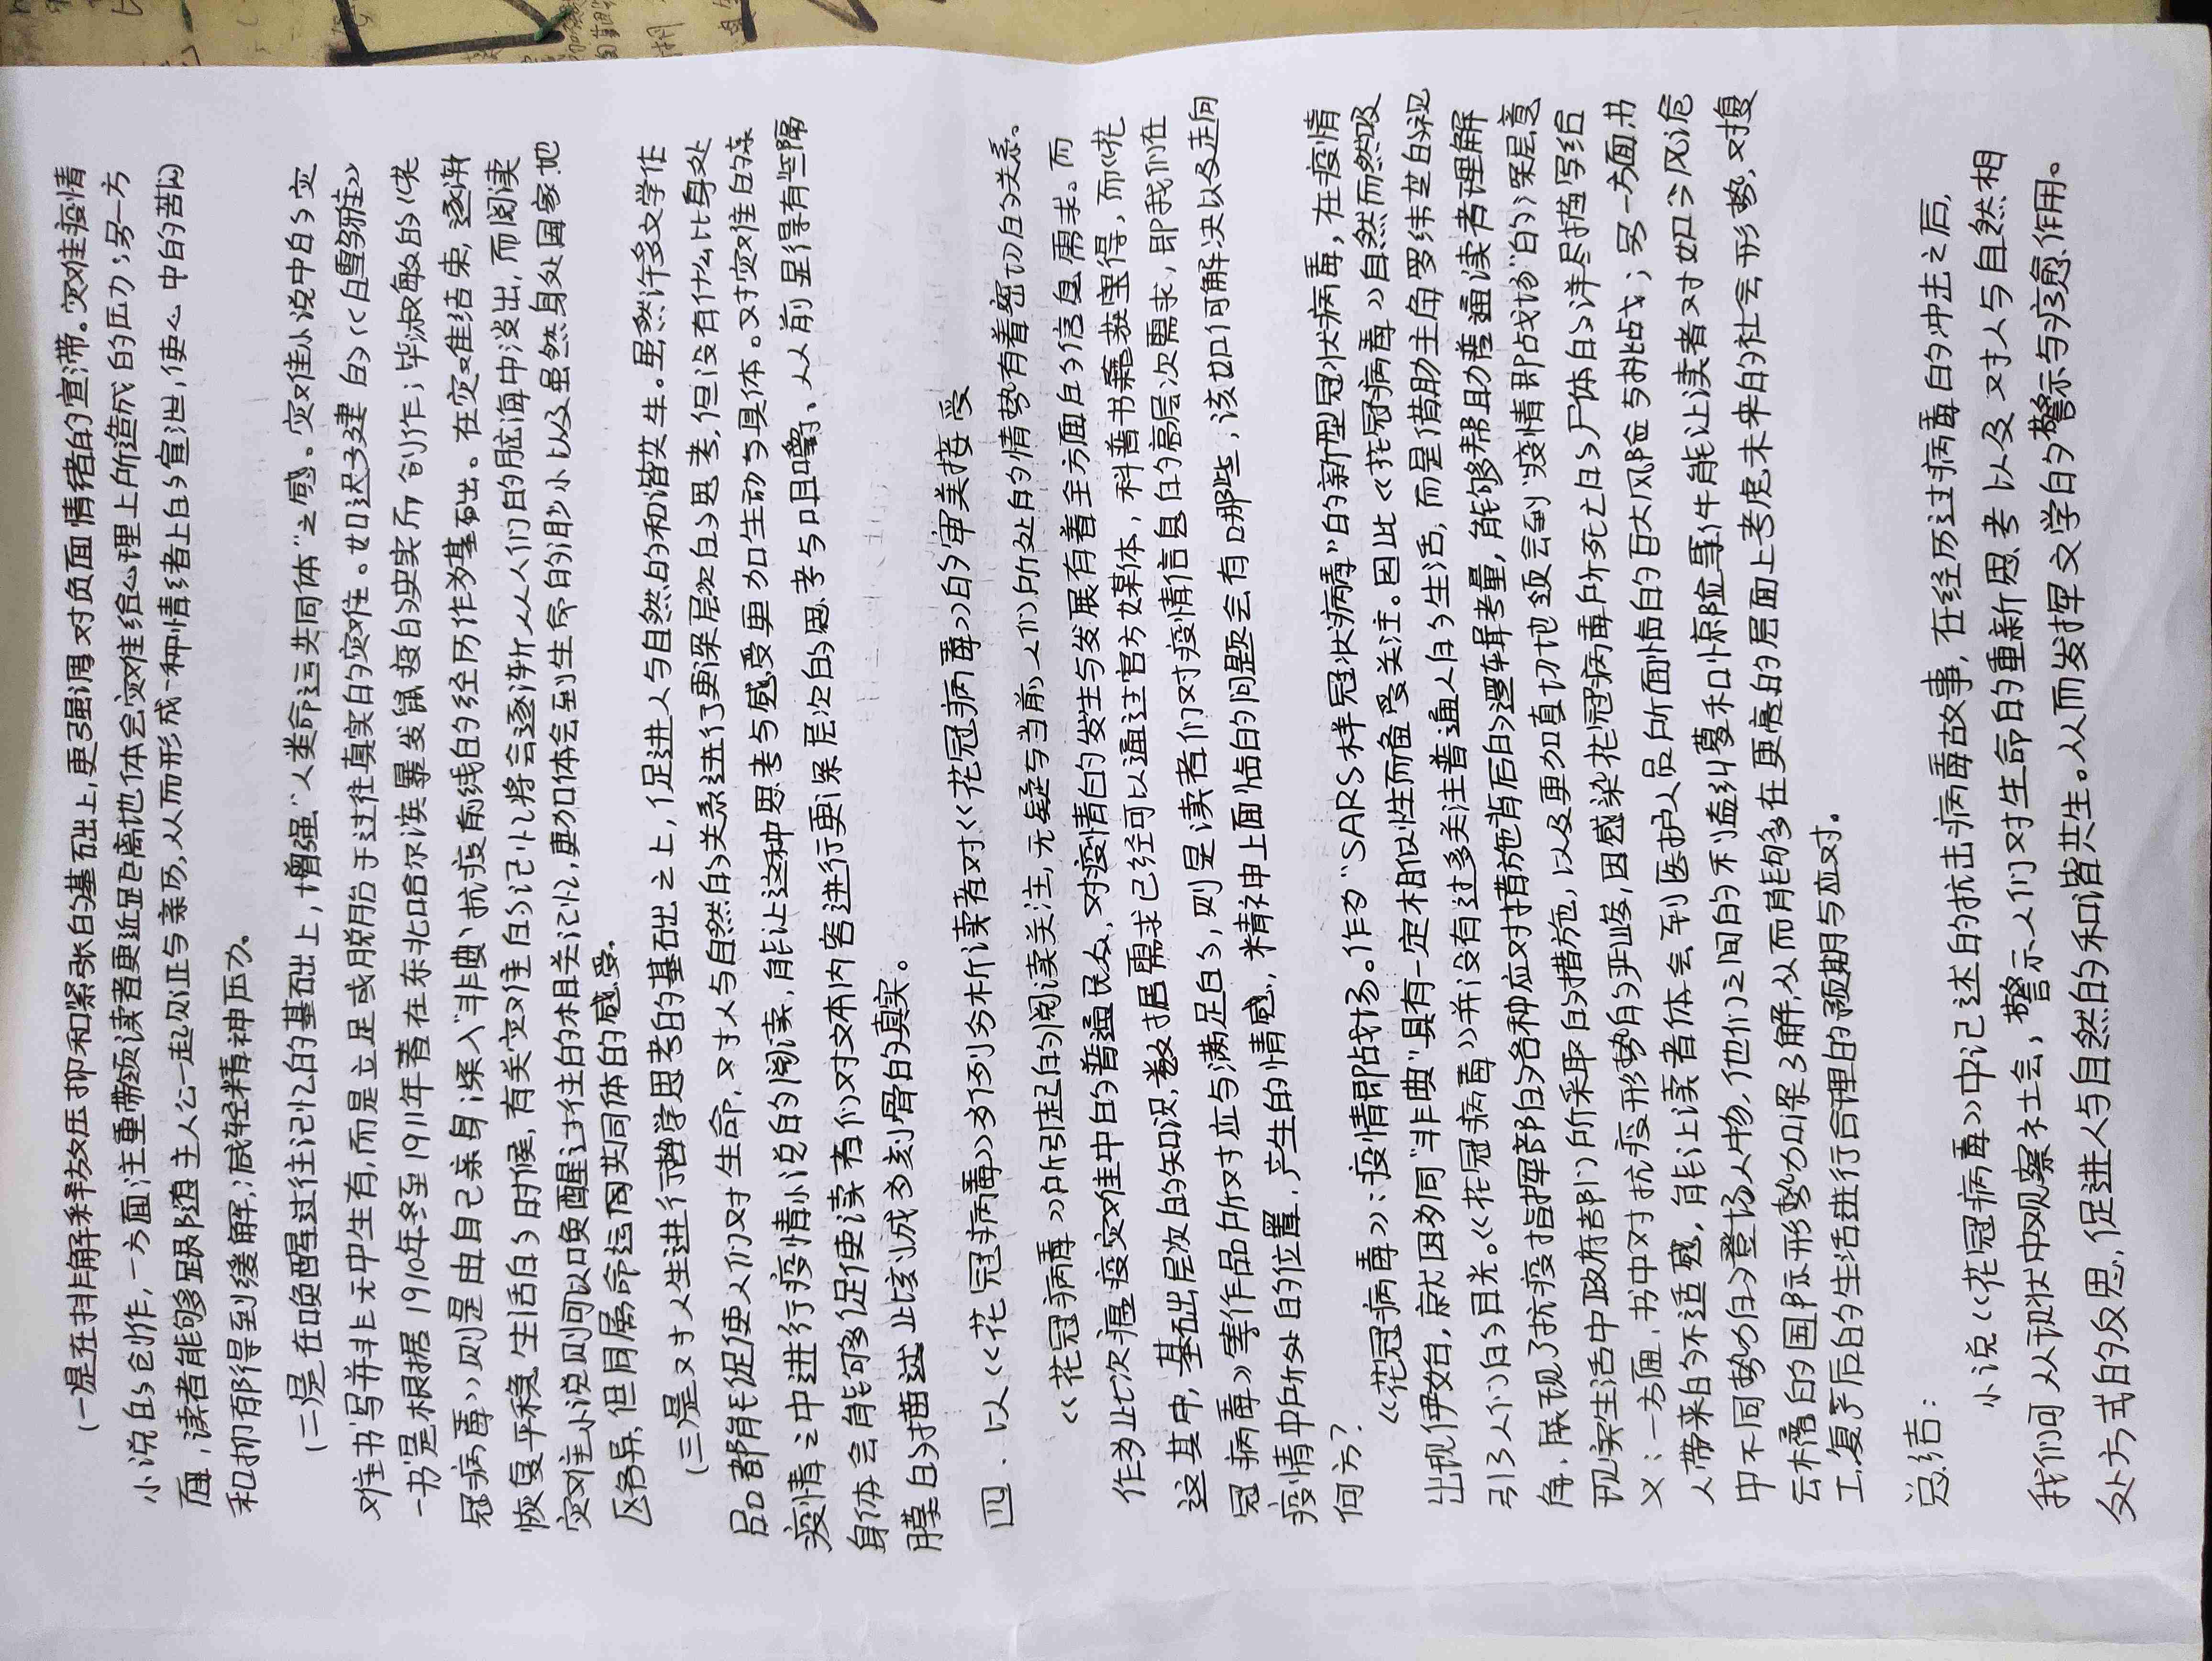 (一)是在排解释放压抑和紧张的基础上,更强调对负面情绪的宣滞。灾难疫情
小说的创作,一方面注重带领读者更近距离地体会灾难给心理上所造成的压力;另一方
面,读者能够跟随主人公一起见证与亲历,从而形成一种情绪上的宣泄,使心中的苦闷
和抑郁得到缓解,减轻精神压力。
(二)是在唤醒过往记忆的基础上,增强“人类命运共同体”之感。灾难小说中的灾
难书写并非无中生有,而是立足或脱胎于过往真实的灾难。如迟子建的《白雪乌鸦》
一书是根据1910年冬至1911年春在东北哈尔滨暴发鼠疫的史实而创作;毕淑敏的《花
冠病毒》则是由自己亲身深入“非典”抗疫前线的经历作为基础。在灾难结束,逐渐
恢复平稳生活的时候,有关灾难的记忆将会逐渐从人们的脑海中淡出,而阅读
灾难小说则可以唤醒过往的相关记忆,更加体会到生命的渺小以及虽然身处国家地
区各异,但同属命运同共同体的感受。
(三)是对人生进行哲学思考的基础之上,促进人与自然的和谐共生。虽然许多文学作
品都能促使人们对生命,对人与自然的关系进行更深层次的思考,但没有什么比身处
疫情之中进行疫情小说的阅读,能让这种思考与感受更加生动与具体。对灾难的亲
身体会能够促使读者们对文本内容进行更深层次的思考与咀嚼、从前显得有些隔
膜的描述此刻成为刻骨的真实。
四.以《花冠病毒》为例分析读者对《花冠病毒》的审美接受
《花冠病毒》所引起的阅读关注,无疑与当前人们所处的情势有着密切的关系。
作为此次瘟疫灾难中的普通民众,对疫情的发生与发展有着全方面的信息需求。而
这其中,基础层次的知识,数据需求已经可以通过官方媒体,科普书籍获得,而《花
冠病毒》等作品所对应与满足的,则是读者们对疫情信息的高层次需求,即我们在
疫情中所处的位置,产生的情感,精神上面临的问题会有哪些,该如何解决以及走向
何方?
《花冠病毒》:疫情即战场。作为“SARS样冠状病毒”的新型冠状病毒,在疫情
出现伊始,就因为同“非典”具有一定相似性而备受关注。因此《花冠病毒》自然而然吸
引了人们的目光。《花冠病毒》并没有过多关注普通人的生活,而是借助主角罗纬芝的视
角,展现了抗疫指挥部的各种应对措施背后的逻辑考量,能够帮助普通读者理解
现实生活中政府部门所采取的措施,以及更加真切地领会到“疫情即战场”的深层意
义:一方面,书中对抗疫形势的严峻,因感染花冠病毒所死亡的尸体的详尽描写给
人带来的不适感,能让读者体会到医护人员所面临的巨大风险与挑战;另一方面书
中不同势力的登场人物,他们之间的利益纠葛和惊险事件能让读者对如今风诡
云橘的国际形势加深了解,从而能够在更高的层面上考虑未来的社会形势,对复
工,复产后的生活进行合理的预期与应对。
总结:
小说《花冠病毒》中记述的抗击病毒故事,在经历过病毒的冲击之后,
我们可从现状中观察社会,警示人们对生命的重新思考以及对人与自然相
处方式的反思,促进人与自然的和谐共生。从而发挥文学的警示与治愈作用。